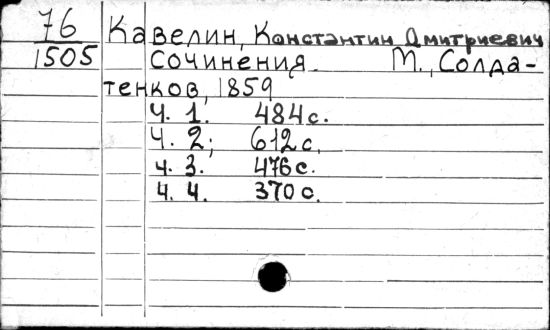 76 Кавелин, Константин Дмитриевич
1505 Сочинения М., Солда-
тенков, 1859
Ч. 1. 484 с.
Ч. 2; 612 с.
ч. 3. 476 с.
ч. 4. 370 с.